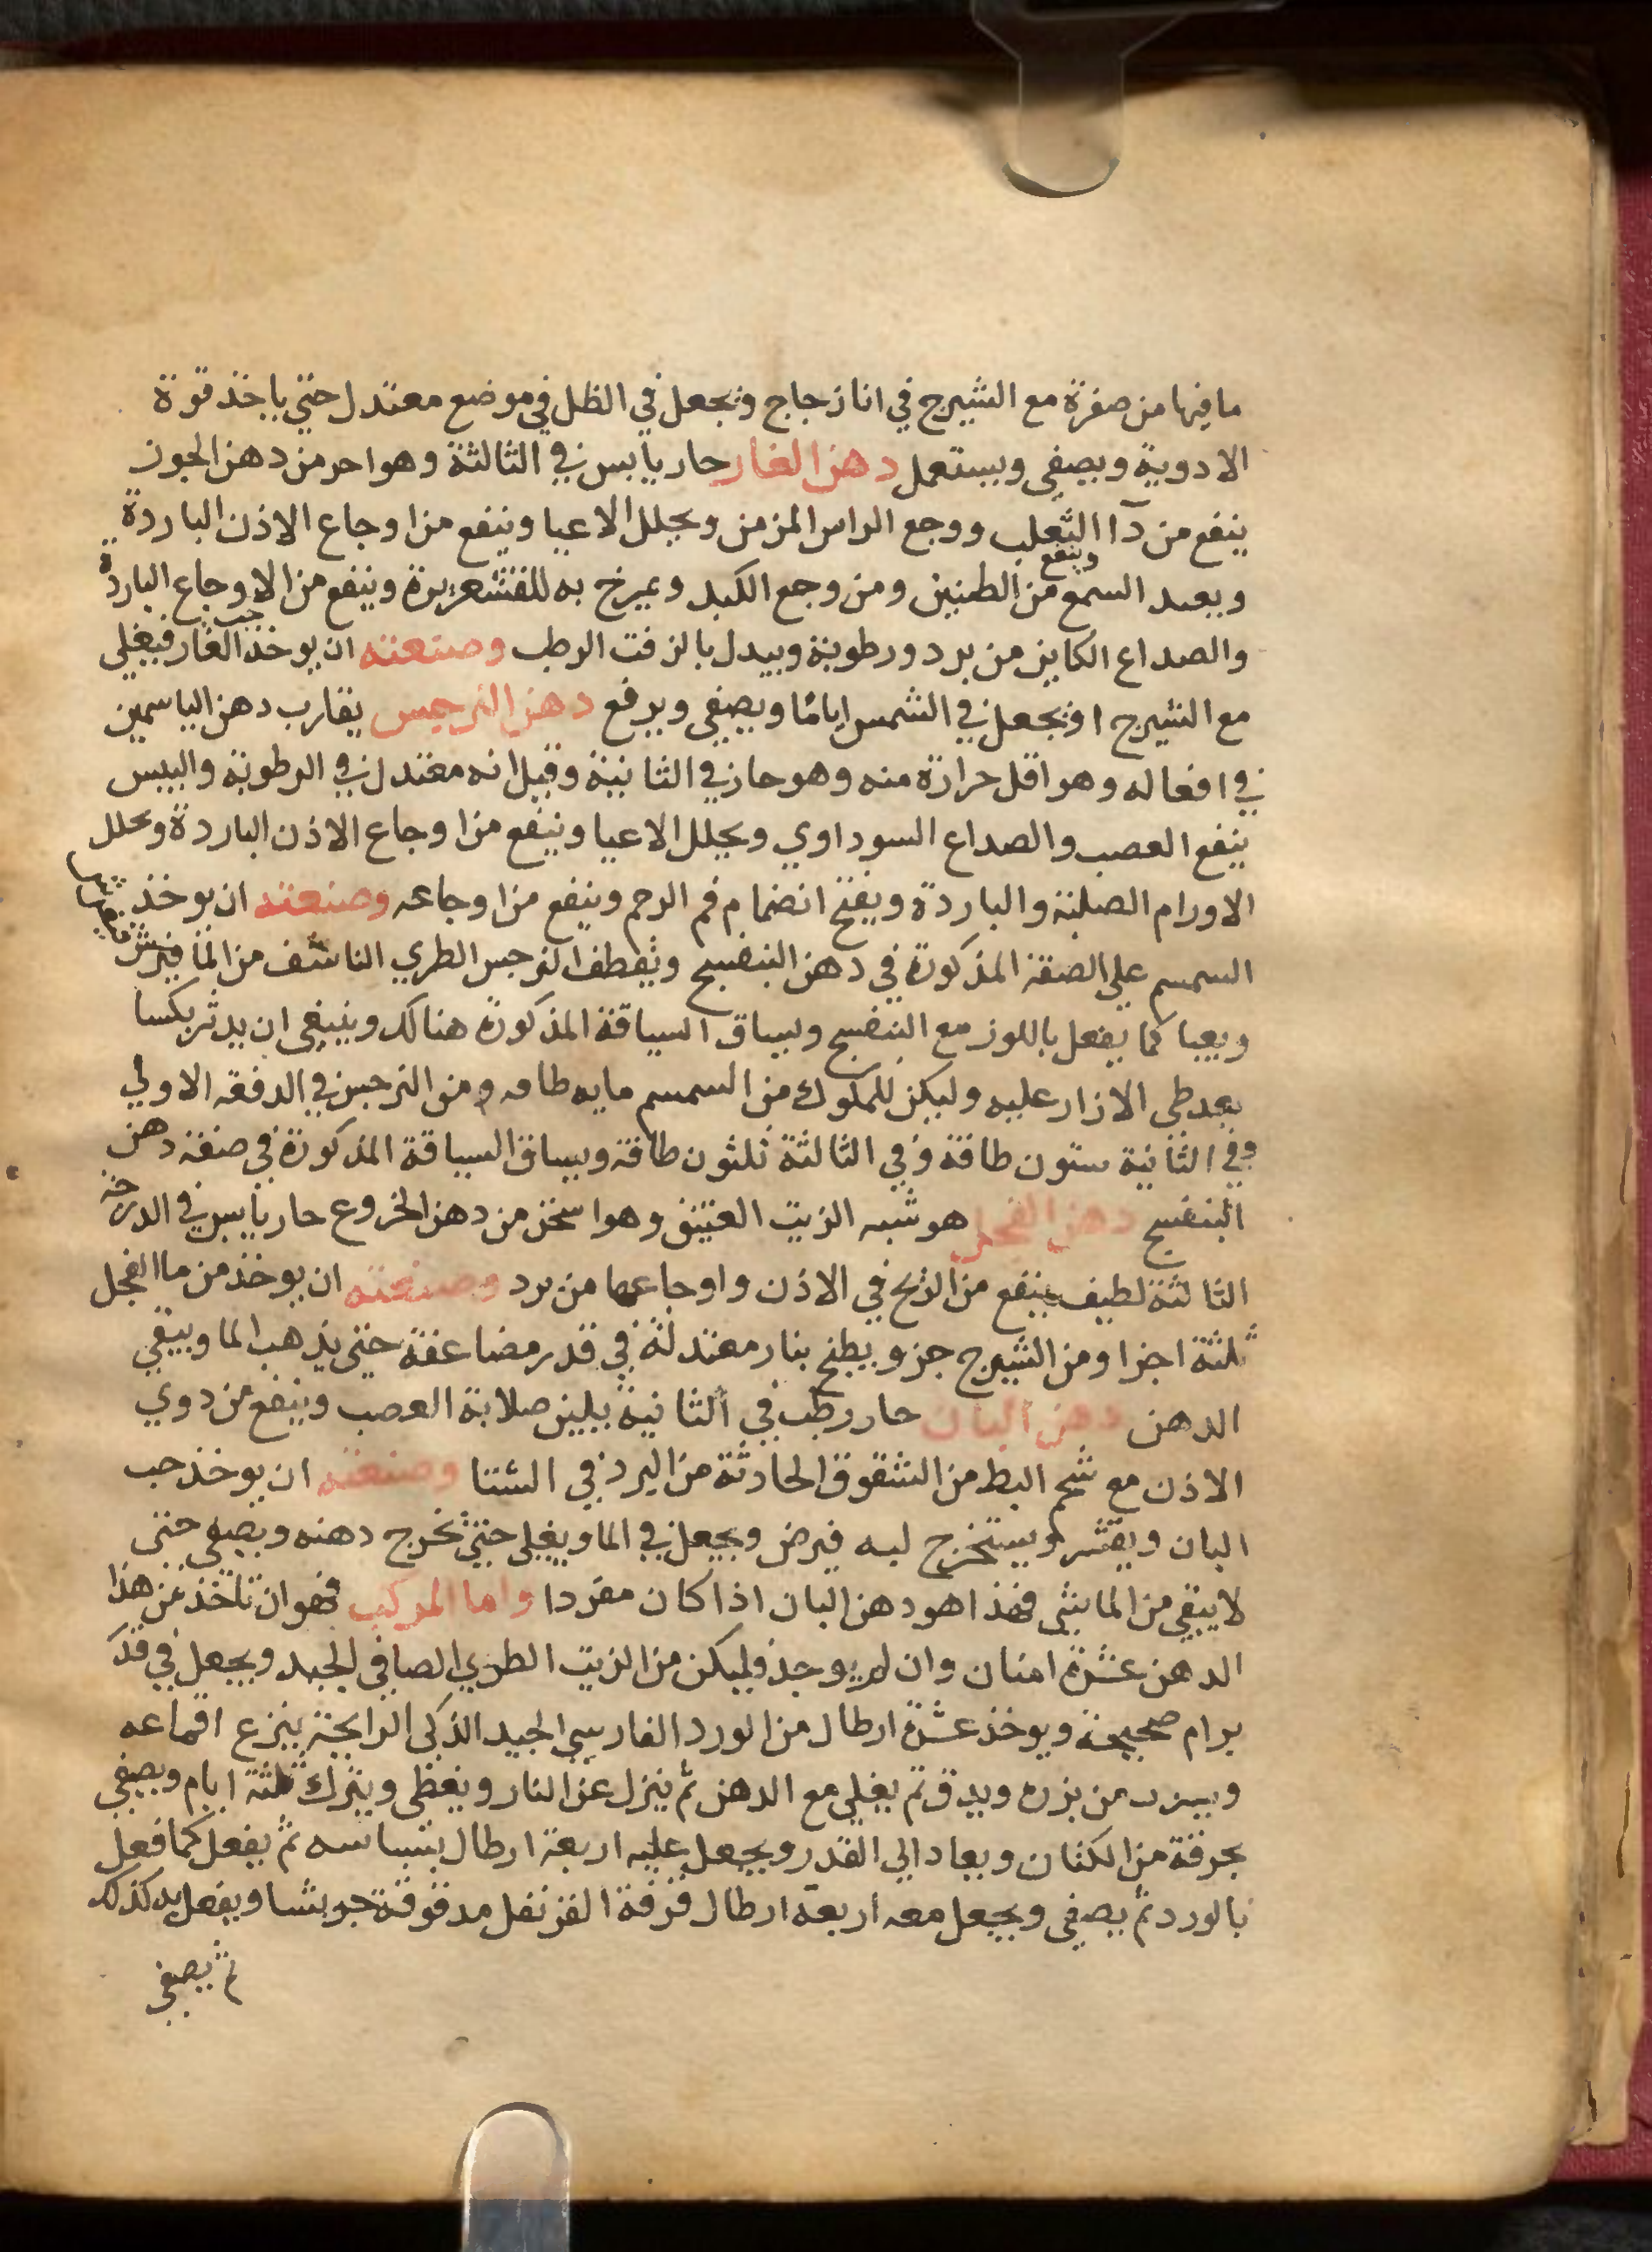 ما فيها من صفرة مع الشيرج في انا زجاج ويجعل في الظل في موضع معتدل حتي ياخذ قوة
الادوية ويصفى ويستعمل دهن الغار حار يابس في الثالثة وهو احر من دهن الجوز
ينفع من دآ الثعلب ووجع الراس المزمن ويحلل الاعيا وينفع من اوجاع الاذن الباردة
ويعيد السمع وينفع من الطنين ومن وجع الكبد ويمرخ به للقشعريرة وينفع من الاوجاع الباردة
والصداع الكاين من برد ورطوبة ويبدل بالزفت الرطب وصنعته ان يوخذ حب الغار فيغلي
مع الشيرج او يجعل في الشمس اياما ويصفي ويرفع دهن النرجس يقارب دهن الياسمين
في افعاله وهو اقل حرارة منه وهو حار في الثانية وقيل انه معتدل في الرطوبة واليبس
ينفع العصب والصداع السوداوي ويحلل الاعيا وينفع من اوجاع الاذن الباردة ويحلل
الاورام الصلبة والباردة ويفتح انضمام فم الرحم وينفع من اوجاعه وصنعته ان يوخذ
السمسم علي الصفة المذكورة في دهن البنفسج ويقطف النرجس الطري الناشف من الما فيفرش
ويعبا كما يفعل باللوز مع البنفسج ويساق السياقة المذكورة هنالك وينبغى ان يدثر بكسا
بعد طى الازار عليه وليكن للملوك من السمسم مايه طاقه ومن النرجس في الدفعه الاولي
وفي الثانية ستون طاقة وفي الثالثة ثلثون طاقة ويساق السياقة المذكورة في صنعة دهن
البنفسج دهن الفجل هو شبه الزيت العتيق وهو اسخن من دهن الخروع حار يابس في الدرجة
الثالثة لطيف ينفع من الريح في الاذن واوجاعها من برد وصنعته ان يوخذ من ما الفجل
ثلثة اجزا ومن الشيرج جزو يطبخ بنار معتدلة في قدر مضاعفة حتي يذهب الما ويبقي
الدهن دهن البان حار رطب في الثانية يلين صلابة العصب وينفع من دوي
الاذن مع شحم البط من الشقوق الحادثة من البرد في الشتا وصنعته ان يوخذ حب
البان ويقشر ويستخرج لبه فيرض ويجعل في الما ويغلي حتي يخرج دهنه ويصفي حتي
لا يبقي من الما شي فهذا هو دهن البان اذا كان مفردا واما المركب فهو ان تاخذ من هذا
الدهن عشرة امنان وان لم يوجد فليكن من الزيت الطري الصافي الجيد ويجعل في قدر
برام صحيحة ويوخذ عشرة ارطال من الورد الفارسي الجيد الذكى الرايحة ينزع اقماعه
ويبرد من بزره ويدق ثم يغلي مع الدهن ثم ينزل عن النار ويغطى ويترك ثلثة ايام ويصفي
بخرقة من الكتان ويعاد الي القدر ويجعل عليه اربعة ارطال بسباسه ثم يفعل كما فعل
بالورد ثم يصفي ويجعل معه اربعة ارطال قرفة القرنفل مدقوقة جريشا ويفعل به كذلك
ثم يصفي